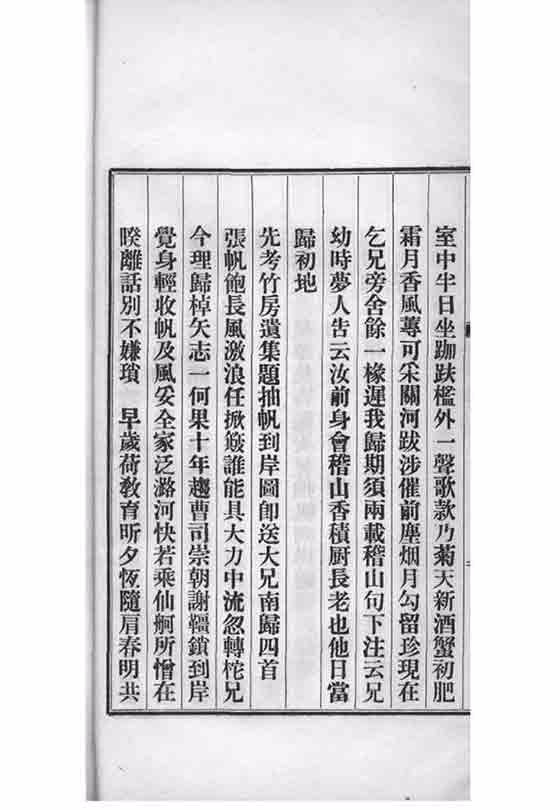 室中半日坐跏趺檻外一聲歌款乃菊天新酒蟹初肥
霜月香風蓴可采關河跋涉催前塵烟月勾留珍現在
乞兄旁舍餘一椽遲我歸期須兩載稽山句下注云兄
幼時夢人告云汝前身會稽山香積厨長老也他日當
歸初地
先考竹房遺集題抽帆到岸圖卽送大兄南歸四首
張帆飽長風激浪任掀簸誰能具大力中流忽轉柁兄
今理歸棹矢志一何果十年趨曹司崇朝謝韁鎖到岸
覺身輕收帆及風妥全家泛潞河快若乘仙舸所憎在
暌離話別不嫌瑣 早歲荷敎育昕夕恆隨肩春明共